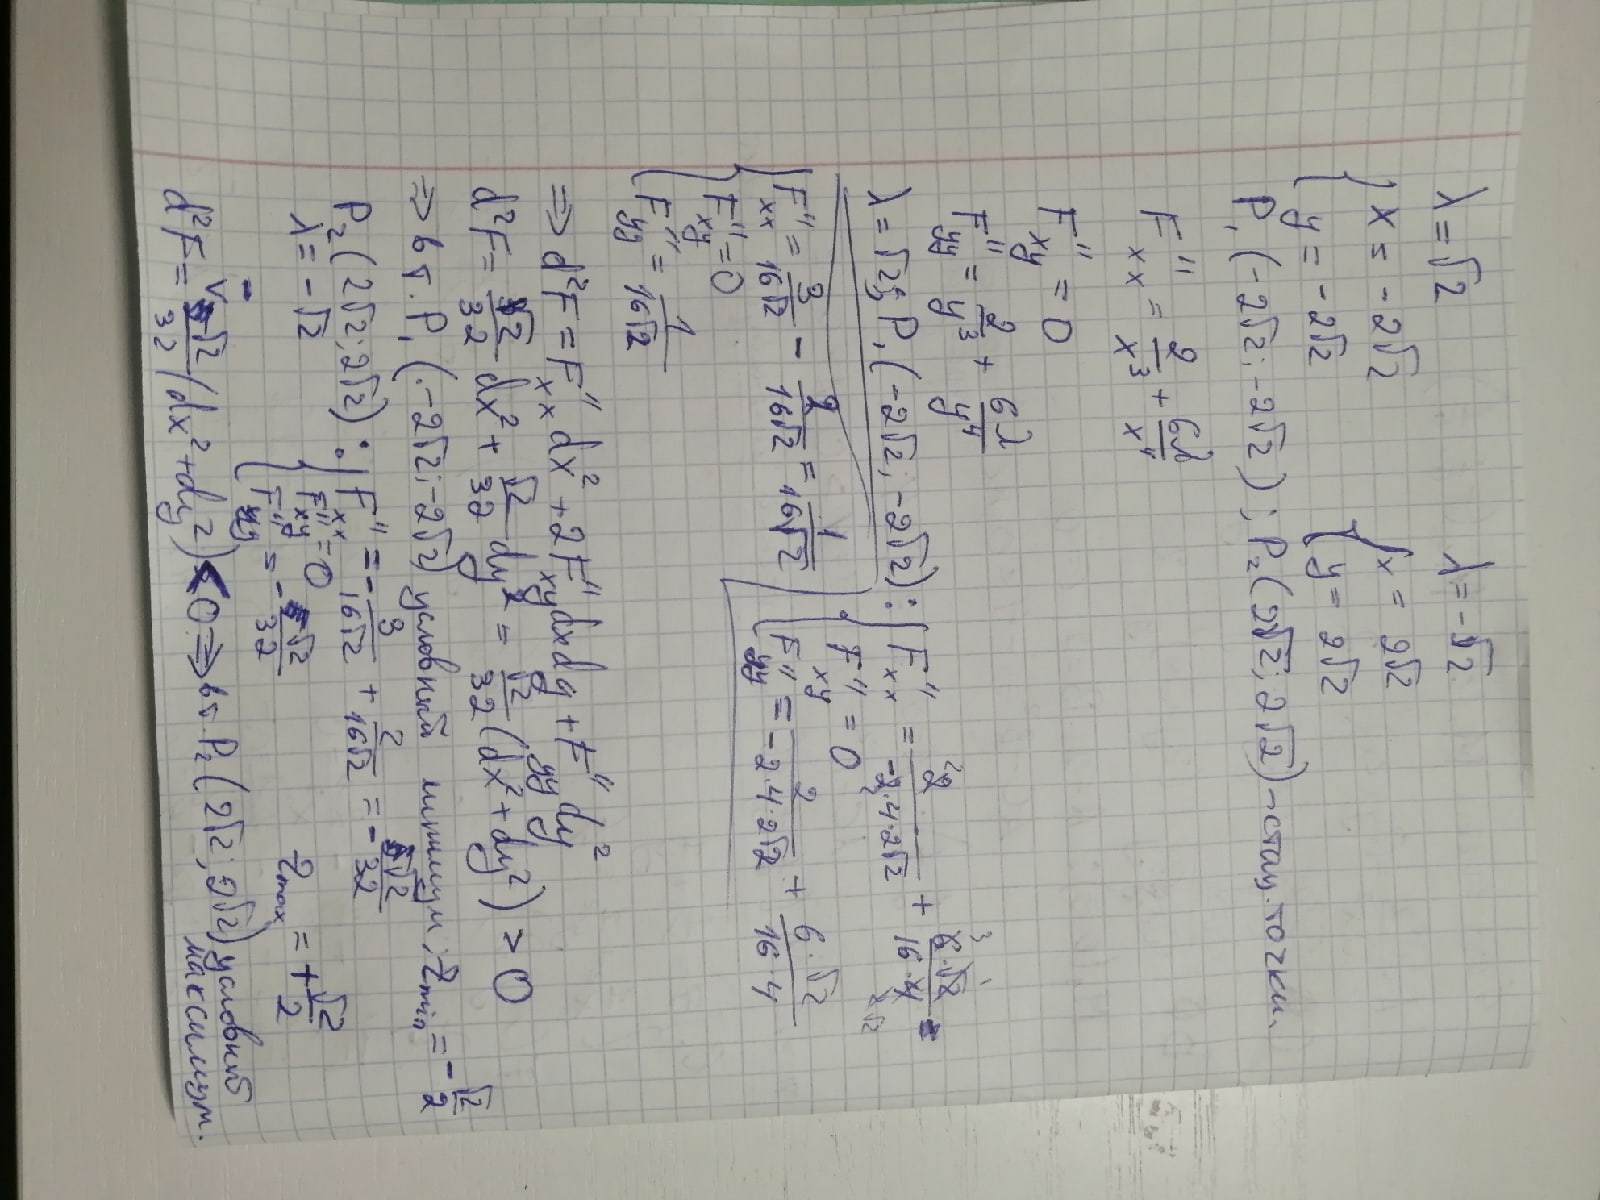 λ = √2        λ = -√2
{ x = -2√2        { x = 2√2
{ y = -2√2        { y = 2√2
P₁ (-2√2; -2√2); P₂ (2√2; 2√2) - стац. точки.
F''xx = 2/x³ + 6λ/x⁴
F''xy = 0
F''yy = 2/y³ + 6λ/y⁴
λ = √2; P₁ (-2√2; -2√2): { F''xx = 2/(-2·4·2√2) + 6·√2/(16·4)
{ F''xy = 0
{ F''yy = 2/(-2·4·2√2) + 6·√2/(16·4)
{ F''xx = 3/(16√2) - 2/(16√2) = 1/(16√2)
{ F''xy = 0
{ F''yy = 1/(16√2)
⇒ d²F = F''xx dx² + 2F''xy dxdy + F''yy dy²
d²F = √2/32 dx² + √2/32 dy² = √2/32 (dx² + dy²) > 0
⇒ в т. P₁ (-2√2; -2√2) условный минимум, Zmin = -√2/2
P₂ (2√2; 2√2): { F''xx = -3/(16√2) + 2/(16√2) = -√2/32
λ = -√2        { F''xy = 0
{ F''yy = -√2/32        Zmax = +√2/2
d²F = -√2/32 (dx² + dy²) < 0 ⇒ в т. P₂ (2√2; 2√2) условный
максимум.